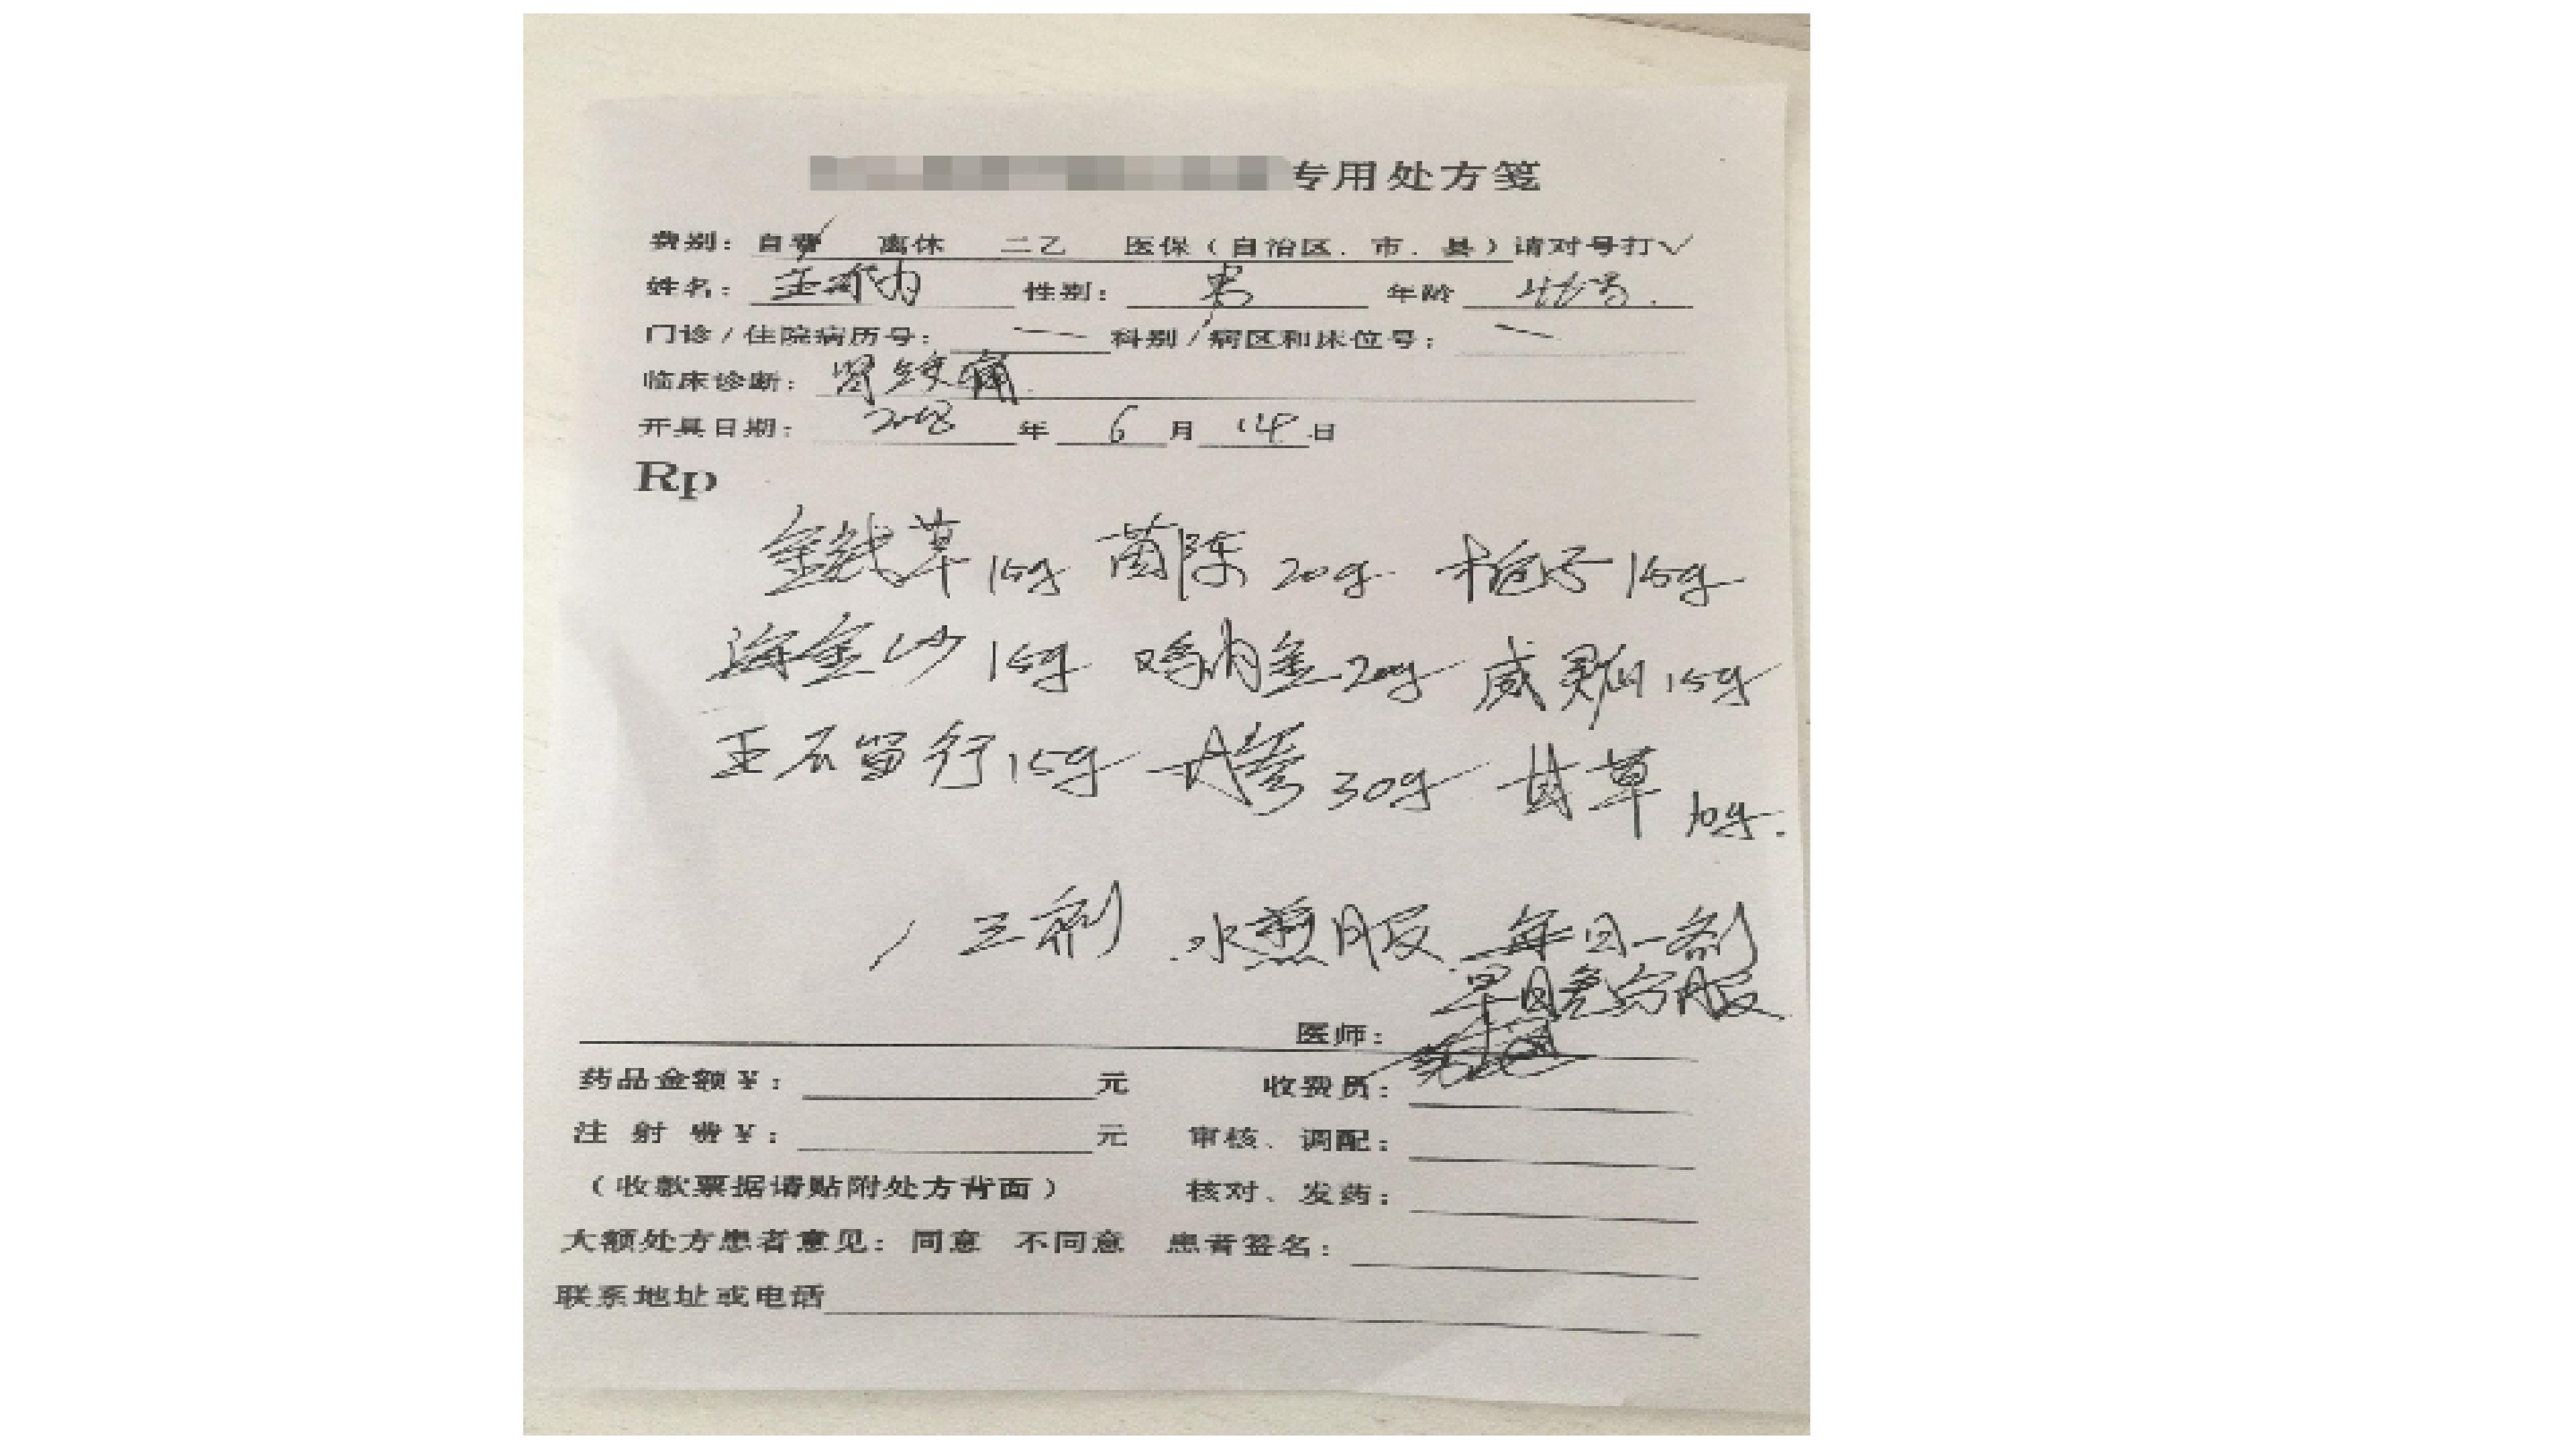 专用处方笺
费别：自费 离休 二乙 医保（自治区．市．县）请对号打√
姓名： 性别：男 年龄
门诊/住院病历号：— 科别/病区和床位号：—
临床诊断：肾绞痛
开具日期：2018年6月14日
Rp
金钱草15g 茵陈20g 栀子15g
海金沙15g 鸡内金20g 威灵仙15g
王不留行15g 丹参30g 甘草10g.
三剂 水煎服 每日一剂
服
医师：
药品金额￥： 元 收费员：
注 射 费￥： 元 审核、调配：
（收款票据请贴附处方背面） 核对、发药：
大额处方患者意见：同意 不同意 患者签名：
联系地址或电话